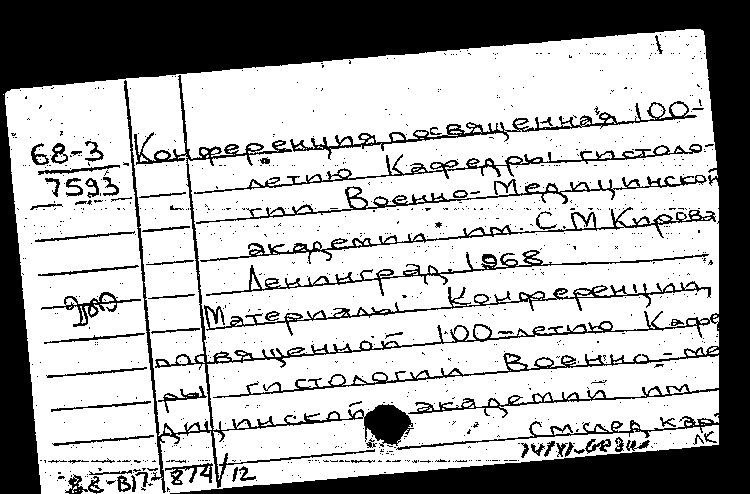 Конференция, посвященная 100-
68-3
7593
летию Кафедры гистоло-
гии Военно-Медицинской
академии им. С.М Кирова
Ленинград. 1968.
Материалы Конференции,
посвященной 100-летию Кафе
ры гистологии Военно-ме
дицинской академий им
см.след.кар
88-ВП- 874/12
ЛК